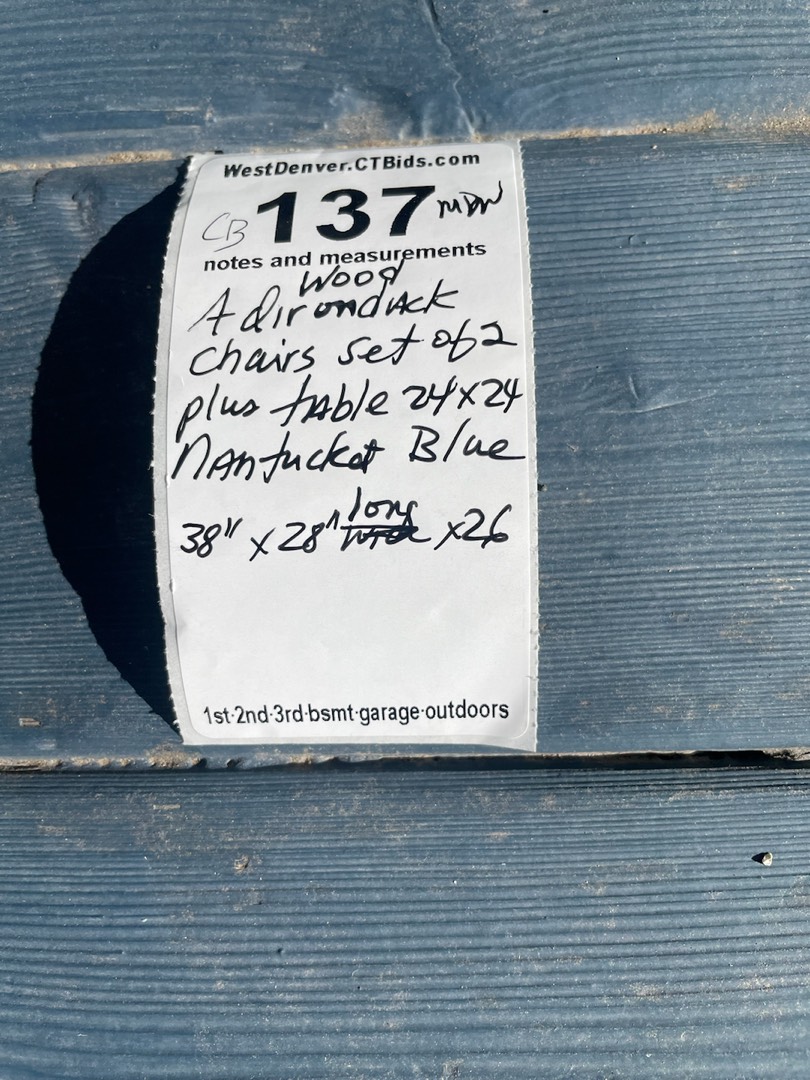 WestDenver.CTBids.com
CB 137 MDW
notes and measurements
Wood
Adirondack
chairs set of 2
plus table 24x24
Nantucket Blue
long
38" x 28" x26
1st·2nd·3rd·bsmt·garage·outdoors